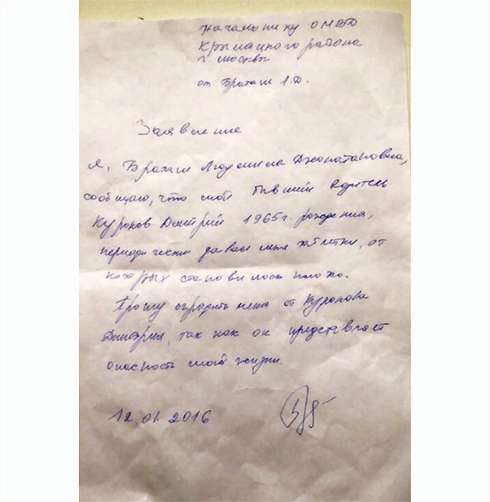 Начальнику ОМВД
Крылацкого района
г. Москвы
от Брагаш Л.Д.
Заявление
Я, Брагаш Людмила Джонатановна,
сообщаю, что мой бывший водитель
Куронов Дмитрий 1965 г. рождения,
периодически давал мне таблетки, от
которых становилось плохо.
Прошу оградить меня от Куронова
Дмитрия, так как он представляет
опасность моей жизни.
12.01.2016